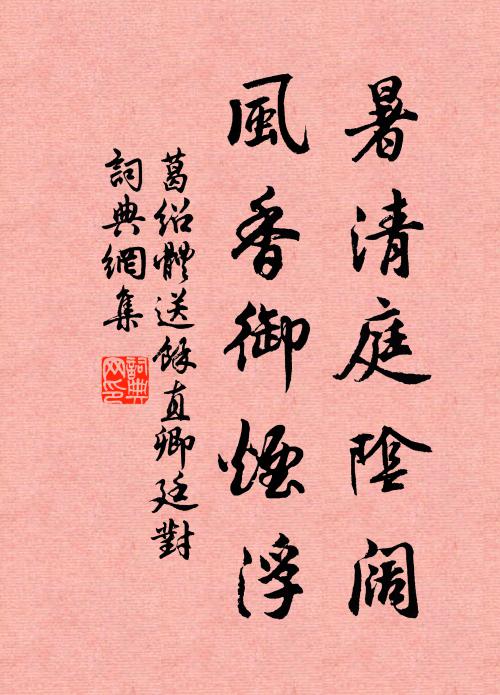 暑清庭陰阔
風香御煙浮
葛绍體送餘直卿廷對
詞典網集
詞典
网印